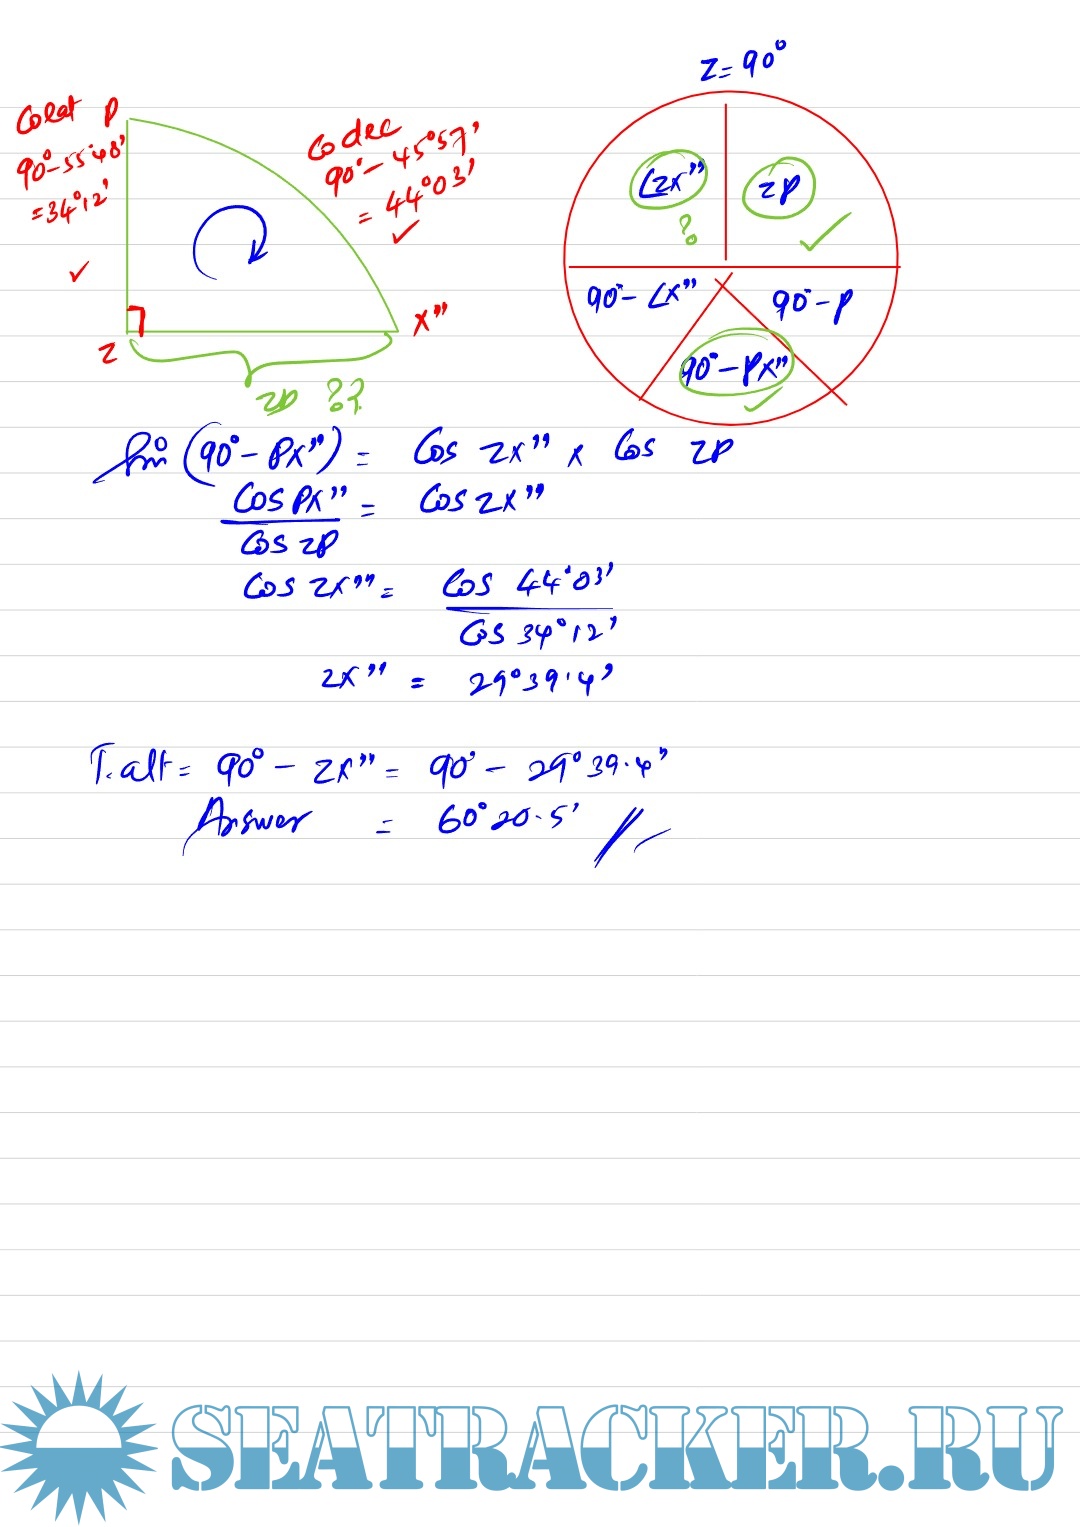 Z = 90°
Colat P
90° - 55°48'
= 34°12'
✓
Codec
90° - 45°57'
= 44°03'
✓
X"
Z
ZP ??
∠ZX"
?
ZP
✓
90° - ∠X"
90° - P
90° - PX"
✓
Sin (90° - PX") = Cos ZX" x Cos ZP
Cos PX" = Cos ZX"
Cos ZP
Cos ZX" = Cos 44°03'
Cos 34°12'
ZX" = 29°39.4'
T. alt = 90° - ZX" = 90° - 29°39.4'
Answer = 60°20.5'
SEATRACKER.RU